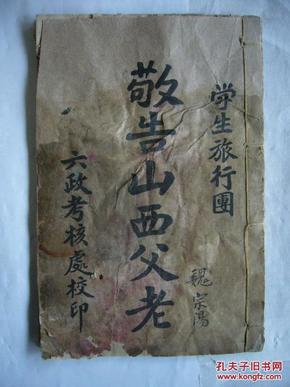 学生旅行團
魏宗湯
敬告山西父老
六政考核處校印
孔夫子旧书网